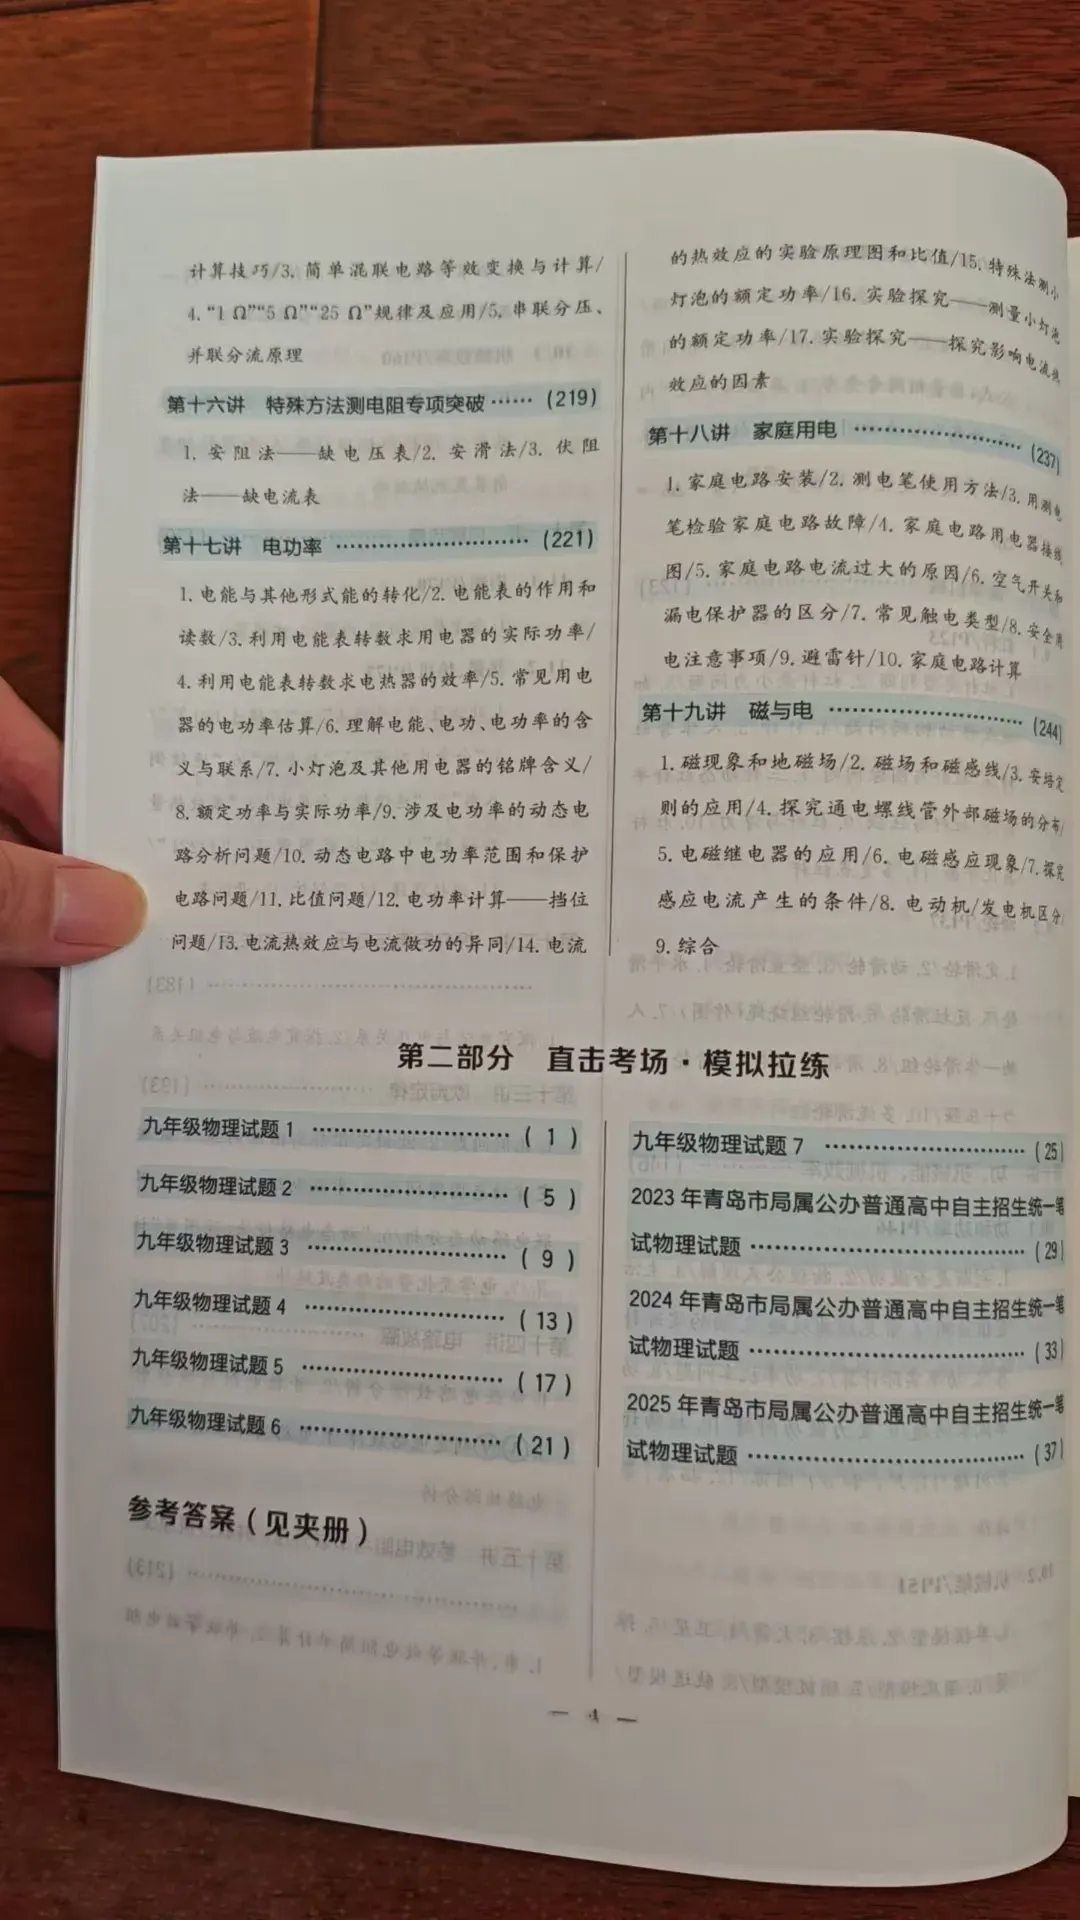 计算技巧/3. 简单混联电路等效变换与计算/
4.“1 Ω”“5 Ω”“25 Ω”规律及应用/5. 串联分压、
并联分流原理
第十六讲 特殊方法测电阻专项突破……(219)
1. 安阻法——缺电压表/2. 安滑法/3. 伏阻
法——缺电流表
第十七讲 电功率…………………………(221)
1. 电能与其他形式能的转化/2. 电能表的作用和
读数/3. 利用电能表转数求用电器的实际功率/
4. 利用电能表转数求电热器的效率/5. 常见用电
器的电功率估算/6. 理解电能、电功、电功率的含
义与联系/7. 小灯泡及其他用电器的铭牌含义/
8. 额定功率与实际功率/9. 涉及电功率的动态电
路分析问题/10. 动态电路中电功率范围和保护
电路问题/11. 比值问题/12. 电功率计算——挡位
问题/13. 电流热效应与电流做功的异同/14. 电流
的热效应的实验原理图和比值/15. 特殊法测小
灯泡的额定功率/16. 实验探究——测量小灯泡
的额定功率/17. 实验探究——探究影响电流热
效应的因素
第十八讲 家庭用电…………………………(237)
1. 家庭电路安装/2. 测电笔使用方法/3. 用测电
笔检验家庭电路故障/4. 家庭电路用电器接线
图/5. 家庭电路电流过大的原因/6. 空气开关和
漏电保护器的区分/7. 常见触电类型/8. 安全用
电注意事项/9. 避雷针/10. 家庭电路计算
第十九讲 磁与电…………………………(244)
1. 磁现象和地磁场/2. 磁场和磁感线/3. 安培定
则的应用/4. 探究通电螺线管外部磁场的分布/
5. 电磁继电器的应用/6. 电磁感应现象/7. 探究
感应电流产生的条件/8. 电动机/发电机区分/
9. 综合
第二部分 直击考场·模拟拉练
九年级物理试题 1…………………………(1)
九年级物理试题 2…………………………(5)
九年级物理试题 3…………………………(9)
九年级物理试题 4…………………………(13)
九年级物理试题 5…………………………(17)
九年级物理试题 6…………………………(21)
九年级物理试题 7…………………………(25)
2023 年青岛市局属公办普通高中自主招生统一笔
试物理试题…………………………………(29)
2024 年青岛市局属公办普通高中自主招生统一笔
试物理试题…………………………………(33)
2025 年青岛市局属公办普通高中自主招生统一笔
试物理试题…………………………………(37)
参考答案(见夹册)
— 4 —